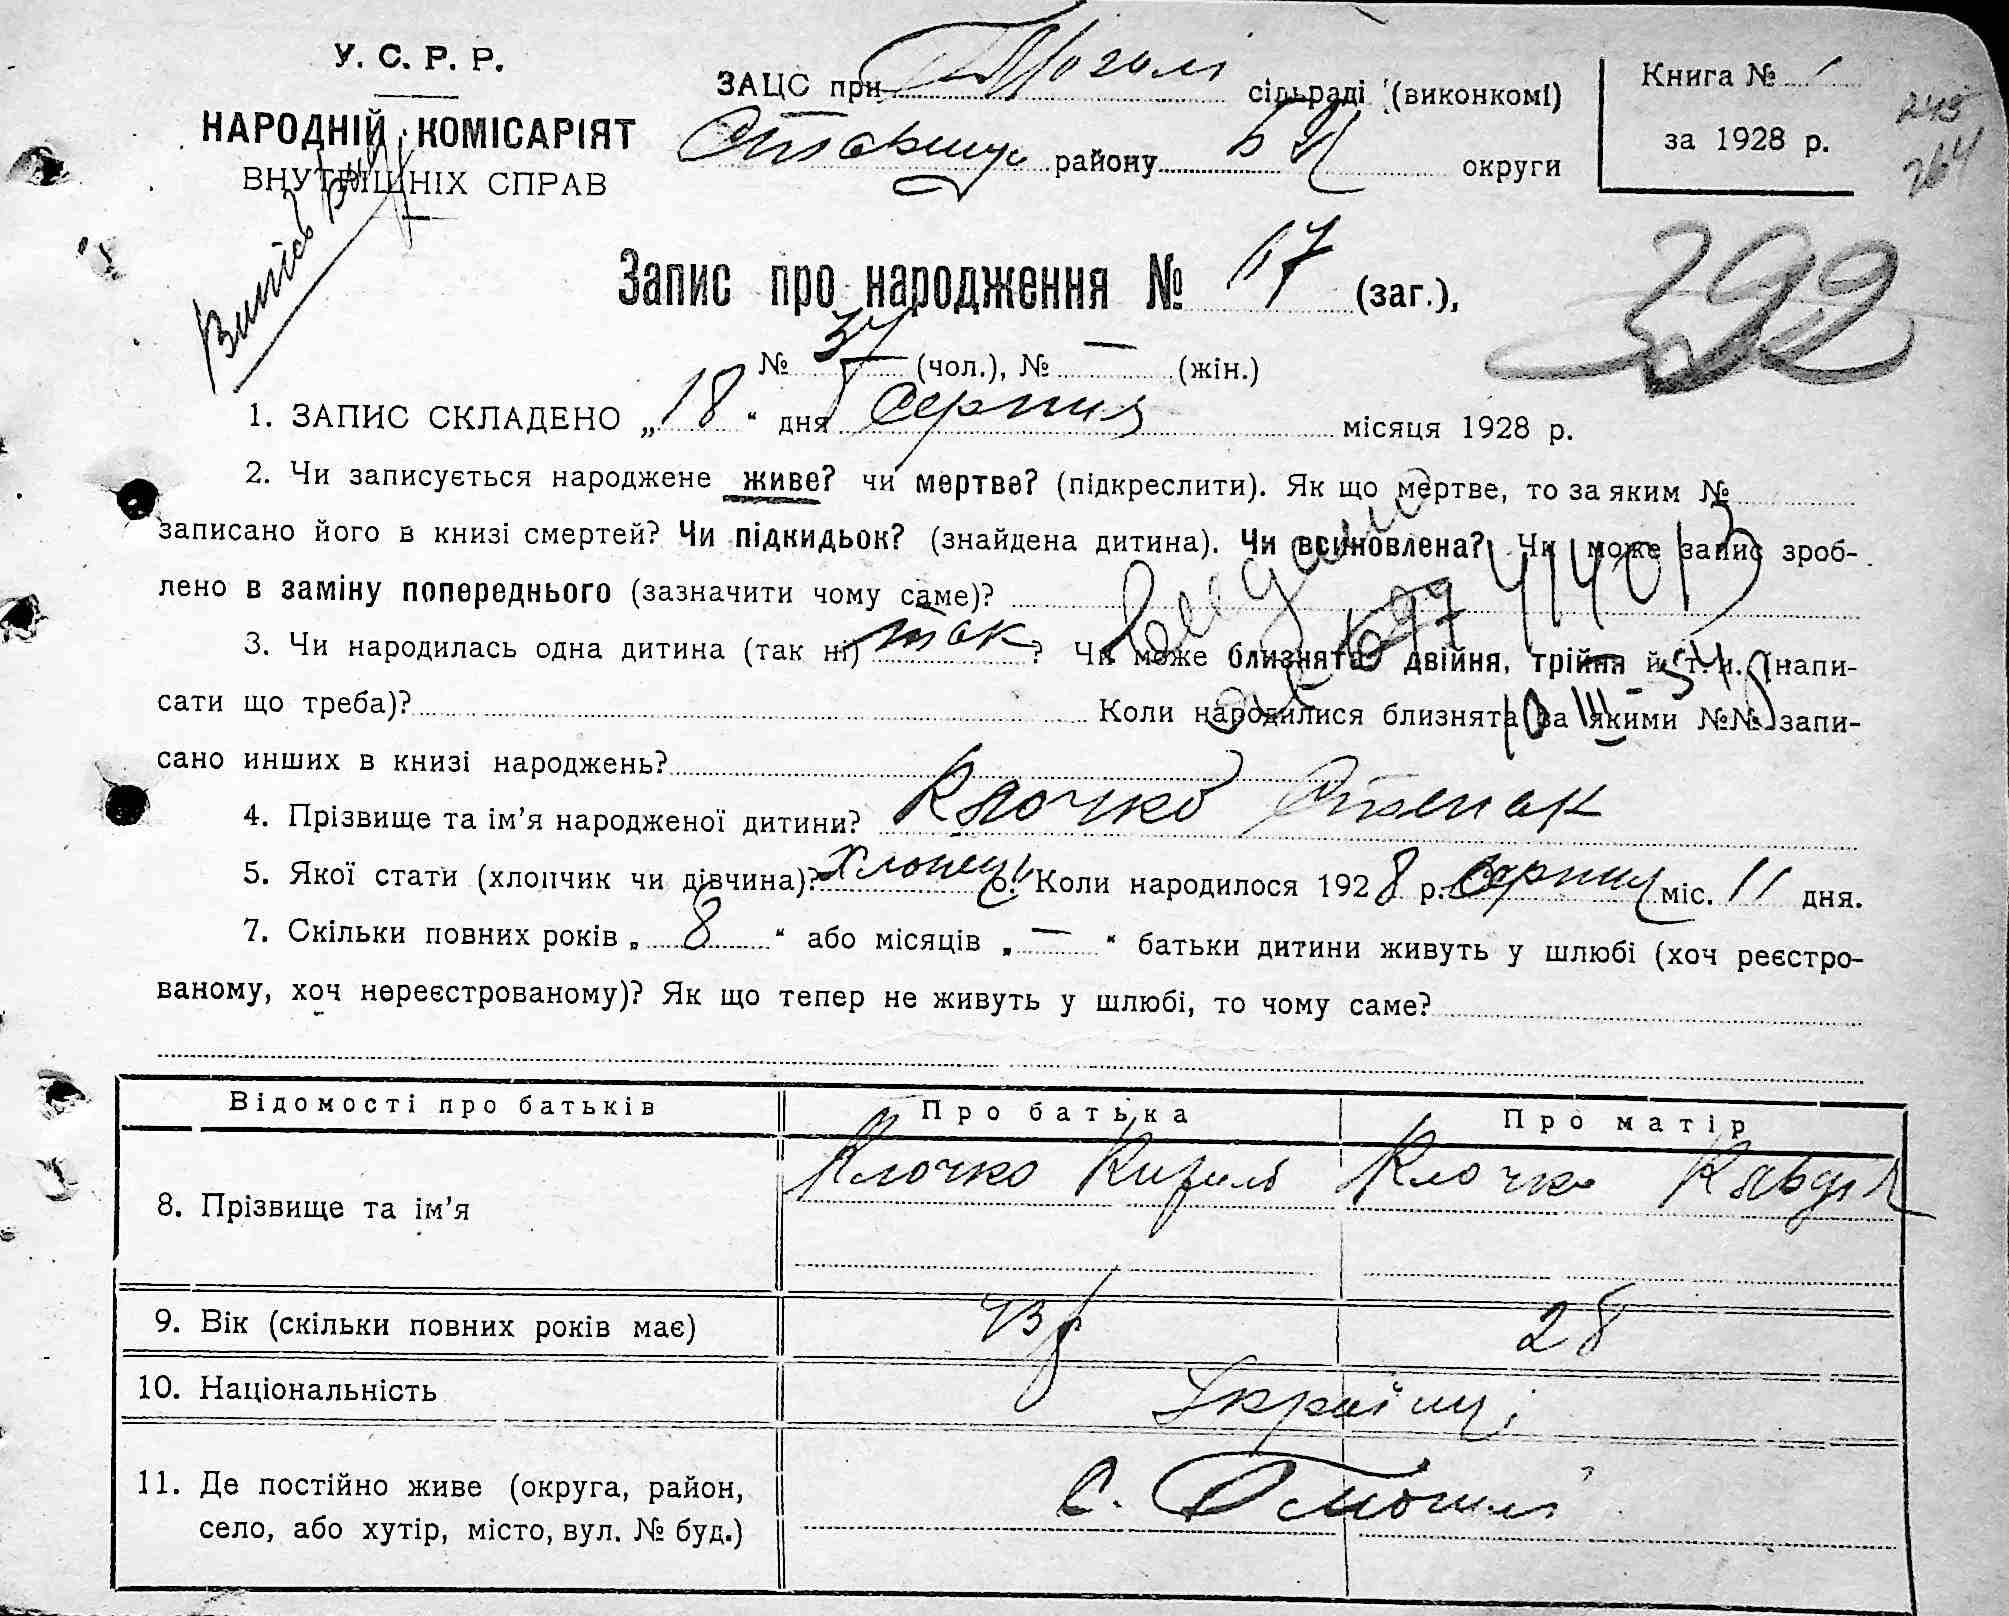 У. С. Р. Р.
НАРОДНІЙ КОМІСАРІЯТ
ВНУТРІШНІХ СПРАВ
ЗАЦС при сільраді (виконкомі)
району БЦ округи
Книга № 1
за 1928 р.
245
264
Запис про народження № 67 (заг.),
392
№ 37 (чол.), № — (жін.)
1. ЗАПИС СКЛАДЕНО „18“ дня Серпня місяця 1928 р.
2. Чи записується народжене живе? чи мертве? (підкреслити). Як що мертве, то за яким №
записано його в книзі смертей? Чи підкидьок? (знайдена дитина). Чи всиновлена? Чи може запис зроб-
лено в заміну попереднього (зазначити чому саме)?
3. Чи народилась одна дитина (так ні) так? Чи може близнята, двійня, трійня й т. и. (напи-
сати що треба)? Коли народилися близнята за якими №№ запи-
сано инших в книзі народжень?
4. Прізвище та ім’я народженої дитини? Клочко Степан
5. Якої стати (хлопчик чи дівчина)? Хлопец 6. Коли народилося 1928 р. Серпня міс. 11 дня.
7. Скільки повних років „8“ або місяців „—“ батьки дитини живуть у шлюбі (хоч реєстро-
ваному, хоч нереєстрованому)? Як що тепер не живуть у шлюбі, то чому саме?
Відомості про батьків Про батька Про матір
8. Прізвище та ім’я Клочко Кирило Клочко Клавдія
9. Вік (скільки повних років має) 28
10. Національність Українці
11. Де постійно живе (округа, район,
село, або хутір, місто, вул. № буд.) с.